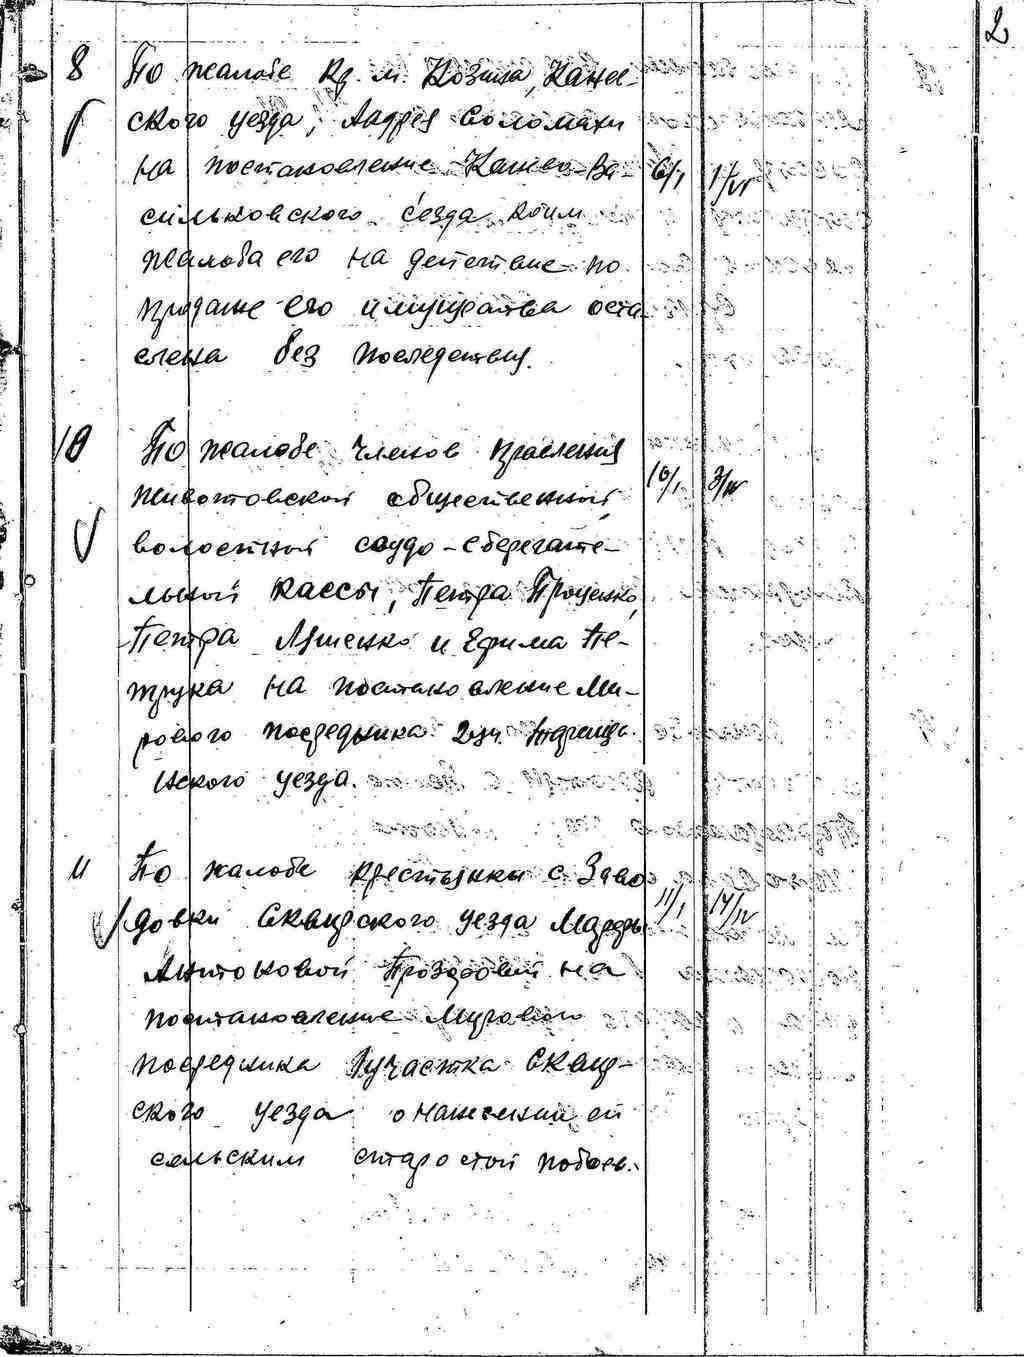 2
8 По жалобе кр. м. Козина, Канев-
ского уезда, Андрея Соломахи
на постановление Канево-Ва- 6/I 1/IV
сильковского съезда коим
жалоба его на действие по
продаже его имущества оста-
влена без последствия.
10 По жалобе членов правления
Животовской общественной 10/I 3/IV
волостной ссудо-сберегате-
льной кассы, Петра Проценко,
Петра Ляшенко и Ефима Пе-
трука на постановление Ми-
рового посредника 2 уч. Таращи-
нского уезда.
11 По жалобе крестьянки с
Сквирского уезда Марфы 11/I 14/IV
Антоновой на
постановление Мирового
посредника 1 участка Сквир-
ского уезда о нанесении ей
сельским старостой побоев.